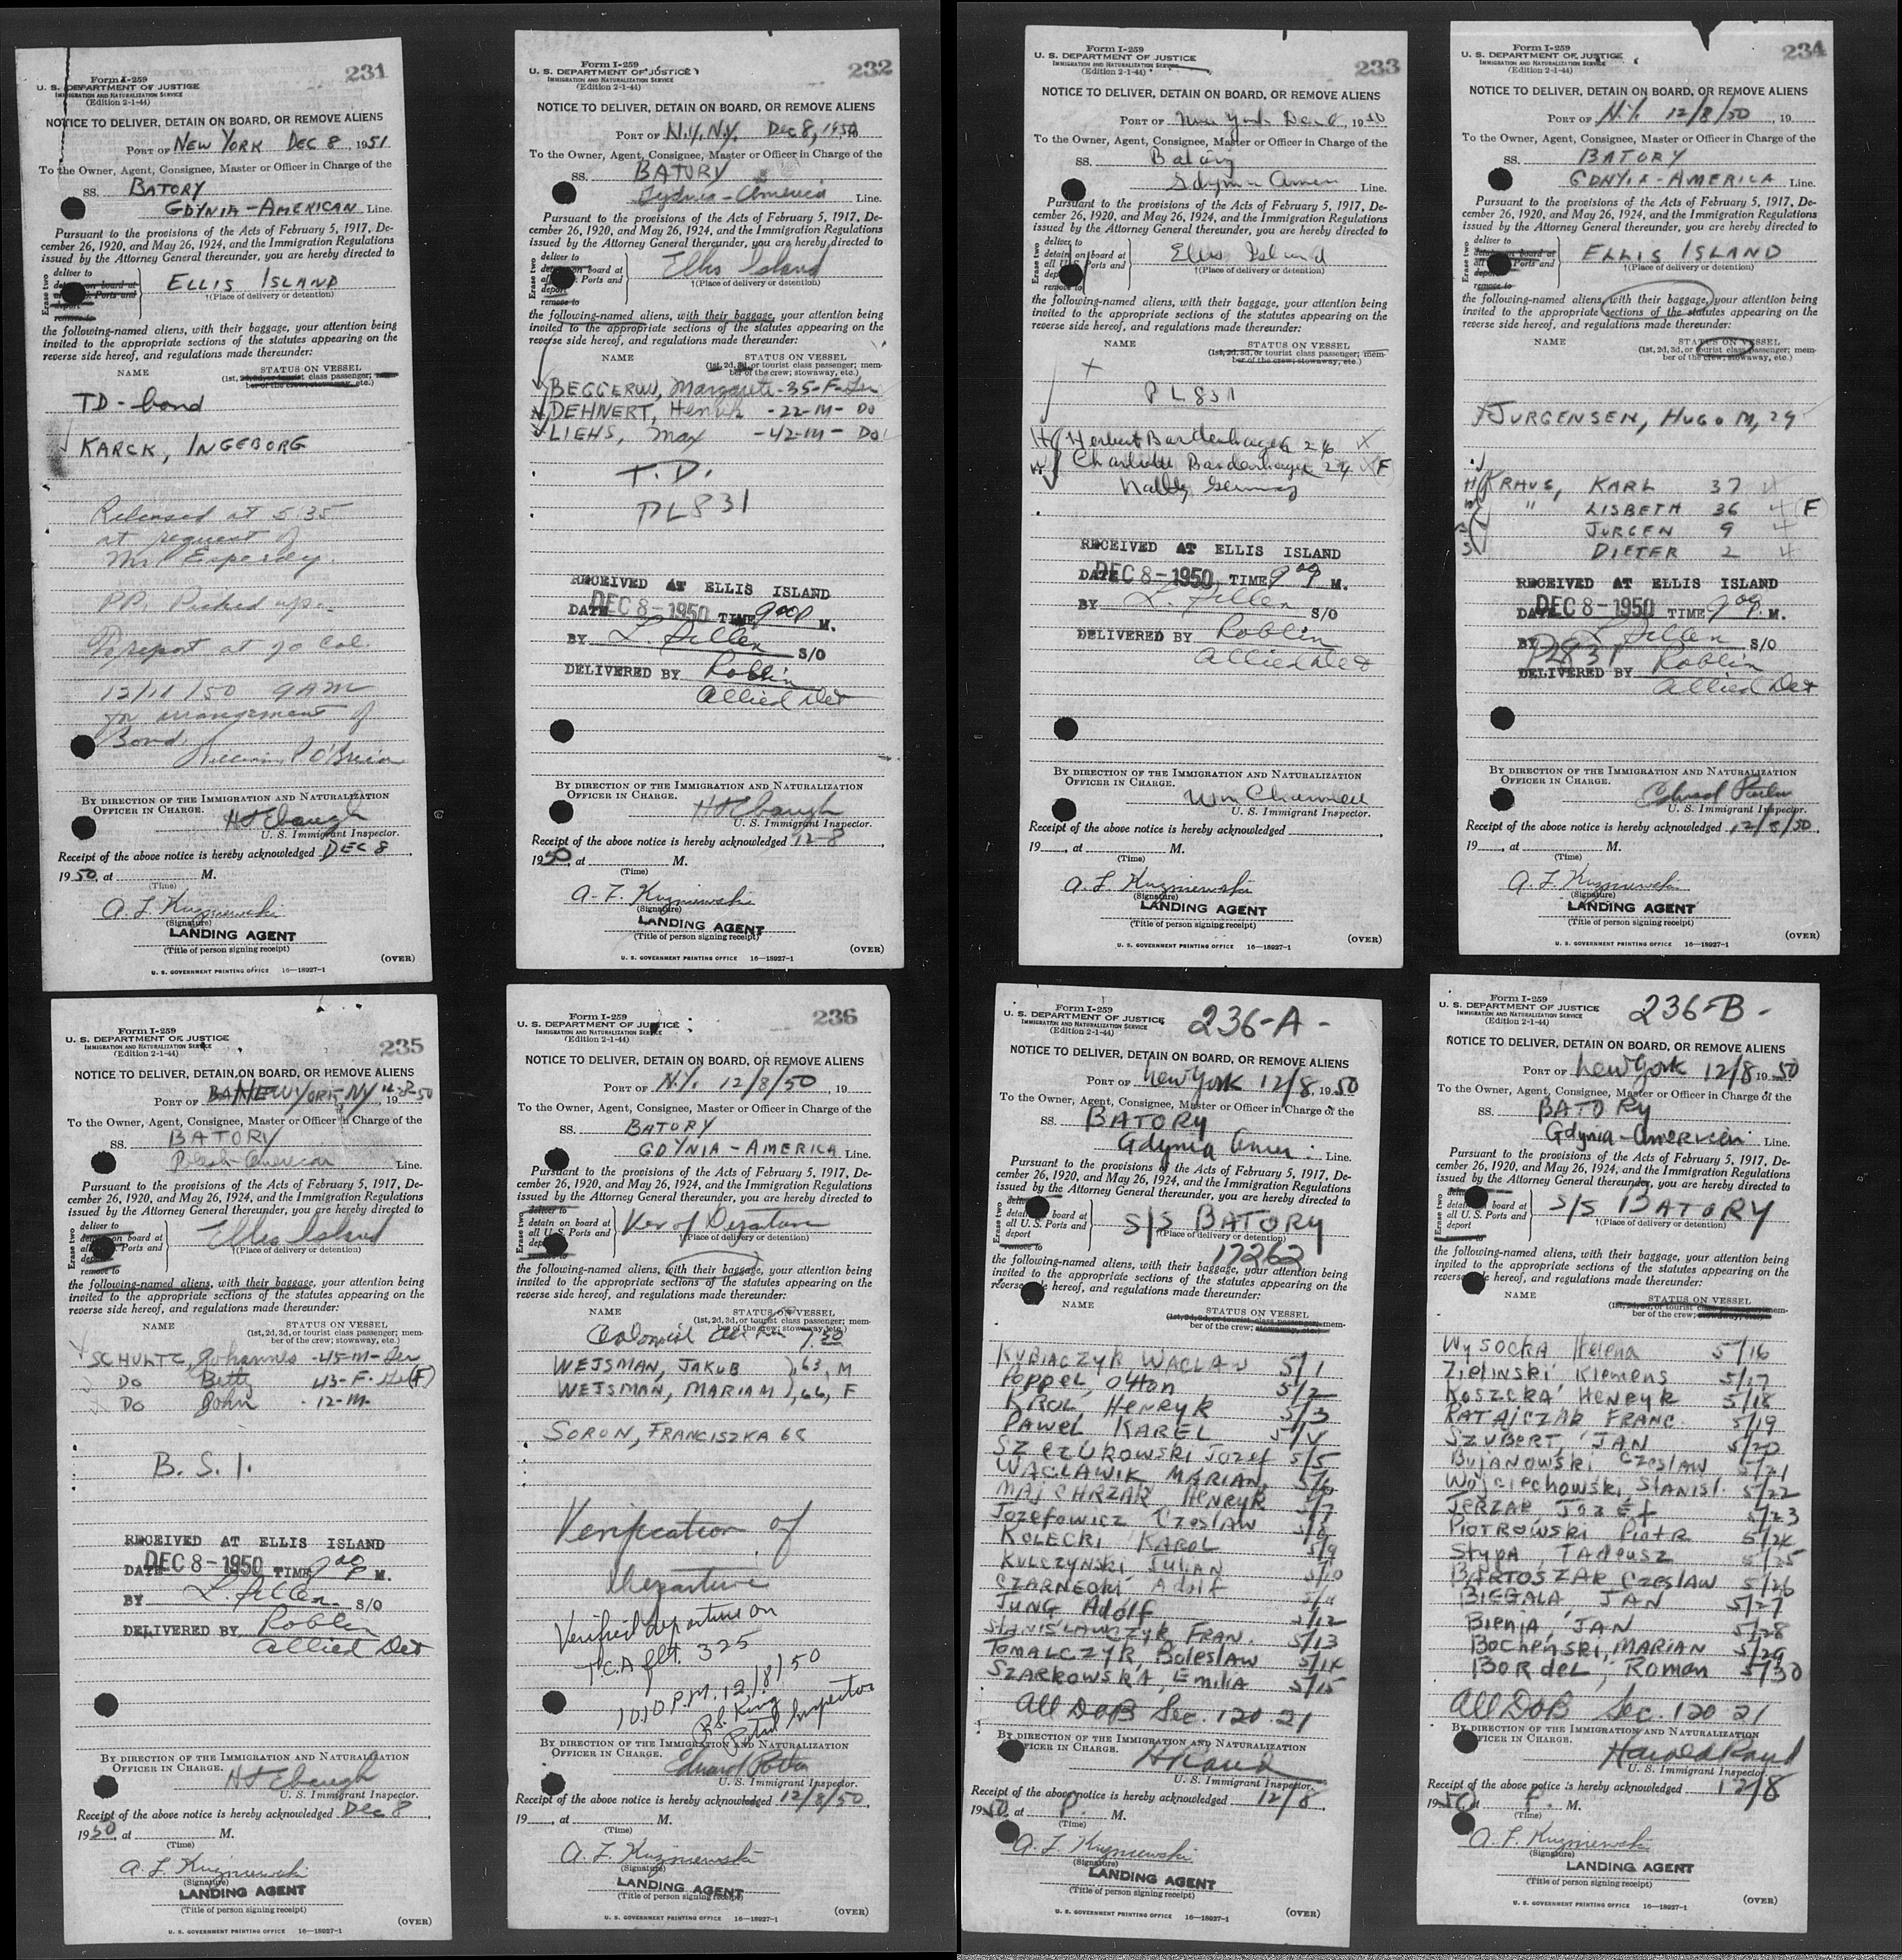 231
Form I-259
U. S. DEPARTMENT OF JUSTICE
IMMIGRATION AND NATURALIZATION SERVICE
(Edition 2-1-44)
NOTICE TO DELIVER, DETAIN ON BOARD, OR REMOVE ALIENS
PORT OF NEW YORK DEC 8, 1951
To the Owner, Agent, Consignee, Master or Officer in Charge of the
SS. BATORY
GDYNIA-AMERICAN Line.
Pursuant to the provisions of the Acts of February 5, 1917, De-
cember 26, 1920, and May 26, 1924, and the Immigration Regulations
issued by the Attorney General thereunder, you are hereby directed to
Erase two
deliver to
detain on board at
all U. S. Ports and
deport
remove to
ELLIS ISLAND
†(Place of delivery or detention)
the following-named aliens, with their baggage, your attention being
invited to the appropriate sections of the statutes appearing on the
reverse side hereof, and regulations made thereunder:
NAME STATUS ON VESSEL
(1st, 2d, 3d, or tourist class passenger; mem-
ber of the crew; stowaway, etc.)
TD - bond
KARCK, INGEBORG
Released at 5:35
at request of
Mr. Esperdy.
PP. Picked up.
To report at 70 Col.
12/11/50 9 AM
for arrangement of
Bond.
William P. O'Brien
BY DIRECTION OF THE IMMIGRATION AND NATURALIZATION
OFFICER IN CHARGE.
H J Ebaugh
U. S. Immigrant Inspector.
Receipt of the above notice is hereby acknowledged DEC 8,
1950, at M.
(Time)
A. F. Kuzniewski
(Signature)
LANDING AGENT
(Title of person signing receipt)
(OVER)
U. S. GOVERNMENT PRINTING OFFICE 16—18927-1
232
Form I-259
U. S. DEPARTMENT OF JUSTICE
IMMIGRATION AND NATURALIZATION SERVICE
(Edition 2-1-44)
NOTICE TO DELIVER, DETAIN ON BOARD, OR REMOVE ALIENS
PORT OF N.Y. N.Y. Dec 8, 1950
To the Owner, Agent, Consignee, Master or Officer in Charge of the
SS. BATORY
Gydnia-America Line.
Pursuant to the provisions of the Acts of February 5, 1917, De-
cember 26, 1920, and May 26, 1924, and the Immigration Regulations
issued by the Attorney General thereunder, you are hereby directed to
Erase two
deliver to
detain on board at
all U. S. Ports and
deport
remove to
Ellis Island
†(Place of delivery or detention)
the following-named aliens, with their baggage, your attention being
invited to the appropriate sections of the statutes appearing on the
reverse side hereof, and regulations made thereunder:
NAME STATUS ON VESSEL
(1st, 2d, 3d, or tourist class passenger; mem-
ber of the crew; stowaway, etc.)
BEGGEROW, Margarete -35-F-Ger
DEHNERT, Henrik -22-M- DO
LIEHS, Max -42-M- DO
T.D.
PL831
RECEIVED AT ELLIS ISLAND
DATE DEC 8-1950 TIME 9 00 P M.
BY L. Pillen S/O
DELIVERED BY Roblin
Allied Det
BY DIRECTION OF THE IMMIGRATION AND NATURALIZATION
OFFICER IN CHARGE.
H J Ebaugh
U. S. Immigrant Inspector.
Receipt of the above notice is hereby acknowledged 12-8,
1950, at M.
(Time)
A. F. Kuzniewski
(Signature)
LANDING AGENT
(Title of person signing receipt)
(OVER)
U. S. GOVERNMENT PRINTING OFFICE 16—18927-1
233
Form I-259
U. S. DEPARTMENT OF JUSTICE
IMMIGRATION AND NATURALIZATION SERVICE
(Edition 2-1-44)
NOTICE TO DELIVER, DETAIN ON BOARD, OR REMOVE ALIENS
PORT OF New York Dec 8, 1950
To the Owner, Agent, Consignee, Master or Officer in Charge of the
SS. Batory
Gdynia Amer Line.
Pursuant to the provisions of the Acts of February 5, 1917, De-
cember 26, 1920, and May 26, 1924, and the Immigration Regulations
issued by the Attorney General thereunder, you are hereby directed to
Erase two
deliver to
detain on board at
all U. S. Ports and
deport
remove to
Ellis Island
†(Place of delivery or detention)
the following-named aliens, with their baggage, your attention being
invited to the appropriate sections of the statutes appearing on the
reverse side hereof, and regulations made thereunder:
NAME STATUS ON VESSEL
(1st, 2d, 3d, or tourist class passenger; mem-
ber of the crew; stowaway, etc.)
PL831
H Herbert Bardenhagen 26
W Charlotte Bardenhagen 24 (F)
Natly Germany
RECEIVED AT ELLIS ISLAND
DATE DEC 8-1950 TIME 9 00 P M.
BY L. Pillen S/O
DELIVERED BY Roblin
Allied Det
BY DIRECTION OF THE IMMIGRATION AND NATURALIZATION
OFFICER IN CHARGE.
Wm
U. S. Immigrant Inspector.
Receipt of the above notice is hereby acknowledged
19 , at M.
(Time)
A. F. Kuzniewski
(Signature)
LANDING AGENT
(Title of person signing receipt)
(OVER)
U. S. GOVERNMENT PRINTING OFFICE 16—18927-1
234
Form I-259
U. S. DEPARTMENT OF JUSTICE
IMMIGRATION AND NATURALIZATION SERVICE
(Edition 2-1-44)
NOTICE TO DELIVER, DETAIN ON BOARD, OR REMOVE ALIENS
PORT OF N.Y. 12/8/50, 19
To the Owner, Agent, Consignee, Master or Officer in Charge of the
SS. BATORY
GDNYIA-AMERICA Line.
Pursuant to the provisions of the Acts of February 5, 1917, De-
cember 26, 1920, and May 26, 1924, and the Immigration Regulations
issued by the Attorney General thereunder, you are hereby directed to
Erase two
deliver to
detain on board at
all U. S. Ports and
deport
remove to
ELLIS ISLAND
†(Place of delivery or detention)
the following-named aliens, with their baggage, your attention being
invited to the appropriate sections of the statutes appearing on the
reverse side hereof, and regulations made thereunder:
NAME STATUS ON VESSEL
(1st, 2d, 3d, or tourist class passenger; mem-
ber of the crew; stowaway, etc.)
JURGENSEN, HUGO M, 29
H KRAUS, KARL 37
W " LISBETH 36 (F)
S JURGEN 9
S DIETER 2
RECEIVED AT ELLIS ISLAND
DATE DEC 8-1950 TIME 9 00 P. M.
BY L Pillen S/O
PL831
DELIVERED BY Roblin
Allied Det
BY DIRECTION OF THE IMMIGRATION AND NATURALIZATION
OFFICER IN CHARGE.
U. S. Immigrant Inspector.
Receipt of the above notice is hereby acknowledged 12/8/50,
19 , at M.
(Time)
A. F. Kuzniewski
(Signature)
LANDING AGENT
(Title of person signing receipt)
(OVER)
U. S. GOVERNMENT PRINTING OFFICE 16—18927-1
235
Form I-259
U. S. DEPARTMENT OF JUSTICE
IMMIGRATION AND NATURALIZATION SERVICE
(Edition 2-1-44)
NOTICE TO DELIVER, DETAIN ON BOARD, OR REMOVE ALIENS
PORT OF NEW YORK-NY 12-8-50
To the Owner, Agent, Consignee, Master or Officer in Charge of the
SS. BATORY
Polish-American Line.
Pursuant to the provisions of the Acts of February 5, 1917, De-
cember 26, 1920, and May 26, 1924, and the Immigration Regulations
issued by the Attorney General thereunder, you are hereby directed to
Erase two
deliver to
detain on board at
all U. S. Ports and
deport
remove to
Ellis Island
†(Place of delivery or detention)
the following-named aliens, with their baggage, your attention being
invited to the appropriate sections of the statutes appearing on the
reverse side hereof, and regulations made thereunder:
NAME STATUS ON VESSEL
(1st, 2d, 3d, or tourist class passenger; mem-
ber of the crew; stowaway, etc.)
SCHULTZ, Johannes -45-M-Ger
DO Betty 43-F-Ger (F)
DO John -12-M.
B. S. I.
RECEIVED AT ELLIS ISLAND
DATE DEC 8-1950 TIME 9 00 P M.
BY L. Pillen S/O
DELIVERED BY Roblin
Allied Det
BY DIRECTION OF THE IMMIGRATION AND NATURALIZATION
OFFICER IN CHARGE.
H J Ebaugh
U. S. Immigrant Inspector.
Receipt of the above notice is hereby acknowledged Dec 8,
1950, at M.
(Time)
A. F. Kuzniewski
(Signature)
LANDING AGENT
(Title of person signing receipt)
(OVER)
U. S. GOVERNMENT PRINTING OFFICE 16—18927-1
236
Form I-259
U. S. DEPARTMENT OF JUSTICE
IMMIGRATION AND NATURALIZATION SERVICE
(Edition 2-1-44)
NOTICE TO DELIVER, DETAIN ON BOARD, OR REMOVE ALIENS
PORT OF N.Y. 12/8/50, 19
To the Owner, Agent, Consignee, Master or Officer in Charge of the
SS. BATORY
GDYNIA-AMERICA Line.
Pursuant to the provisions of the Acts of February 5, 1917, De-
cember 26, 1920, and May 26, 1924, and the Immigration Regulations
issued by the Attorney General thereunder, you are hereby directed to
Erase two
deliver to
detain on board at
all U. S. Ports and
deport
remove to
Ver of Departure
†(Place of delivery or detention)
the following-named aliens, with their baggage, your attention being
invited to the appropriate sections of the statutes appearing on the
reverse side hereof, and regulations made thereunder:
NAME STATUS ON VESSEL
(1st, 2d, 3d, or tourist class passenger; mem-
ber of the crew; stowaway, etc.)
Colonial Air 7:30
WEJSMAN, JAKUB ), 63, M
WEJSMAN, MARIAM ), 66, F
SORON, FRANCISZKA 68
Verification of
Departure
Verified departure on
T.C.A flt. 325
1010 P.M. 12/8/50
R.S. King
Patrol Inspector
BY DIRECTION OF THE IMMIGRATION AND NATURALIZATION
OFFICER IN CHARGE.
Edward
U. S. Immigrant Inspector.
Receipt of the above notice is hereby acknowledged 12/8/50,
19 , at M.
(Time)
A. F. Kuzniewski
(Signature)
LANDING AGENT
(Title of person signing receipt)
(OVER)
U. S. GOVERNMENT PRINTING OFFICE 16—18927-1
236-A-
Form I-259
U. S. DEPARTMENT OF JUSTICE
IMMIGRATION AND NATURALIZATION SERVICE
(Edition 2-1-44)
NOTICE TO DELIVER, DETAIN ON BOARD, OR REMOVE ALIENS
PORT OF New York 12/8 1950
To the Owner, Agent, Consignee, Master or Officer in Charge of the
SS. BATORY
Gdynia Amer. Line.
Pursuant to the provisions of the Acts of February 5, 1917, De-
cember 26, 1920, and May 26, 1924, and the Immigration Regulations
issued by the Attorney General thereunder, you are hereby directed to
Erase two
deliver to
detain on board at
all U. S. Ports and
deport
remove to
S/S BATORY
†(Place of delivery or detention)
17262
the following-named aliens, with their baggage, your attention being
invited to the appropriate sections of the statutes appearing on the
reverse side hereof, and regulations made thereunder:
NAME STATUS ON VESSEL
(1st, 2d, 3d, or tourist class passenger; mem-
ber of the crew; stowaway, etc.)
KUBIACZYK WACLAW 5/1
Poppel, Otton 5/2
KROL HENRYK 5/3
PAWEL KAREL 5/4
SZCZUKOWSKI Jozef 5/5
WACLAWIK MARIAN 5/6
MAJCHRZAK HENRYK 5/7
Jozefowicz Czeslaw 5/8
KOLECKI KAROL 5/9
KULCZYNSKI Julian 5/10
CZARNECKI Adolf 5/11
JUNG Adolf 5/12
STANISLAWCZYK FRAN. 5/13
TOMALCZYK, Boleslaw 5/14
SZARKOWSKA, Emilia 5/15
All DOB Sec. 120.21
BY DIRECTION OF THE IMMIGRATION AND NATURALIZATION
OFFICER IN CHARGE.
H Rand
U. S. Immigrant Inspector.
Receipt of the above notice is hereby acknowledged 12/8,
1950, at P. M.
(Time)
A. F. Kuzniewski
(Signature)
LANDING AGENT
(Title of person signing receipt)
(OVER)
U. S. GOVERNMENT PRINTING OFFICE 16—18927-1
236-B-
Form I-259
U. S. DEPARTMENT OF JUSTICE
IMMIGRATION AND NATURALIZATION SERVICE
(Edition 2-1-44)
NOTICE TO DELIVER, DETAIN ON BOARD, OR REMOVE ALIENS
PORT OF New York 12/8 1950
To the Owner, Agent, Consignee, Master or Officer in Charge of the
SS. BATORY
Gdynia-American Line.
Pursuant to the provisions of the Acts of February 5, 1917, De-
cember 26, 1920, and May 26, 1924, and the Immigration Regulations
issued by the Attorney General thereunder, you are hereby directed to
Erase two
board at
all U. S. Ports and
deport
S/S BATORY
†(Place of delivery or detention)
the following-named aliens, with their baggage, your attention being
invited to the appropriate sections of the statutes appearing on the
reverse side hereof, and regulations made thereunder:
NAME STATUS ON VESSEL
(1st, 2d, 3d, or tourist class passenger; mem-
ber of the crew; stowaway, etc.)
WYSOCKA Helena 5/16
Zielinski Klemens 5/17
KOSZCKA HENRYK 5/18
RATAJCZAK FRANC. 5/19
SZUBERT, JAN 5/20
BUJANOWSKI Czeslaw 5/21
Wojciechowski, Stanisl. 5/22
JERZAK Jozef 5/23
PIOTROWSKI Piotr 5/24
Stypa, TADEUSZ 5/25
BARTOSZAK Czeslaw 5/26
BIEGALA, JAN 5/27
Bienia, JAN 5/28
Bochenski, MARIAN 5/29
BORdel, Roman 5/30
All DOB Sec. 120.21
BY DIRECTION OF THE IMMIGRATION AND NATURALIZATION
OFFICER IN CHARGE.
Harold Rand
U. S. Immigrant Inspector.
Receipt of the above notice is hereby acknowledged 12/8
1950, at P. M.
(Time)
A. F. Kuzniewski
(Signature)
LANDING AGENT
(Title of person signing receipt)
(OVER)
U. S. GOVERNMENT PRINTING OFFICE 16—18927-1